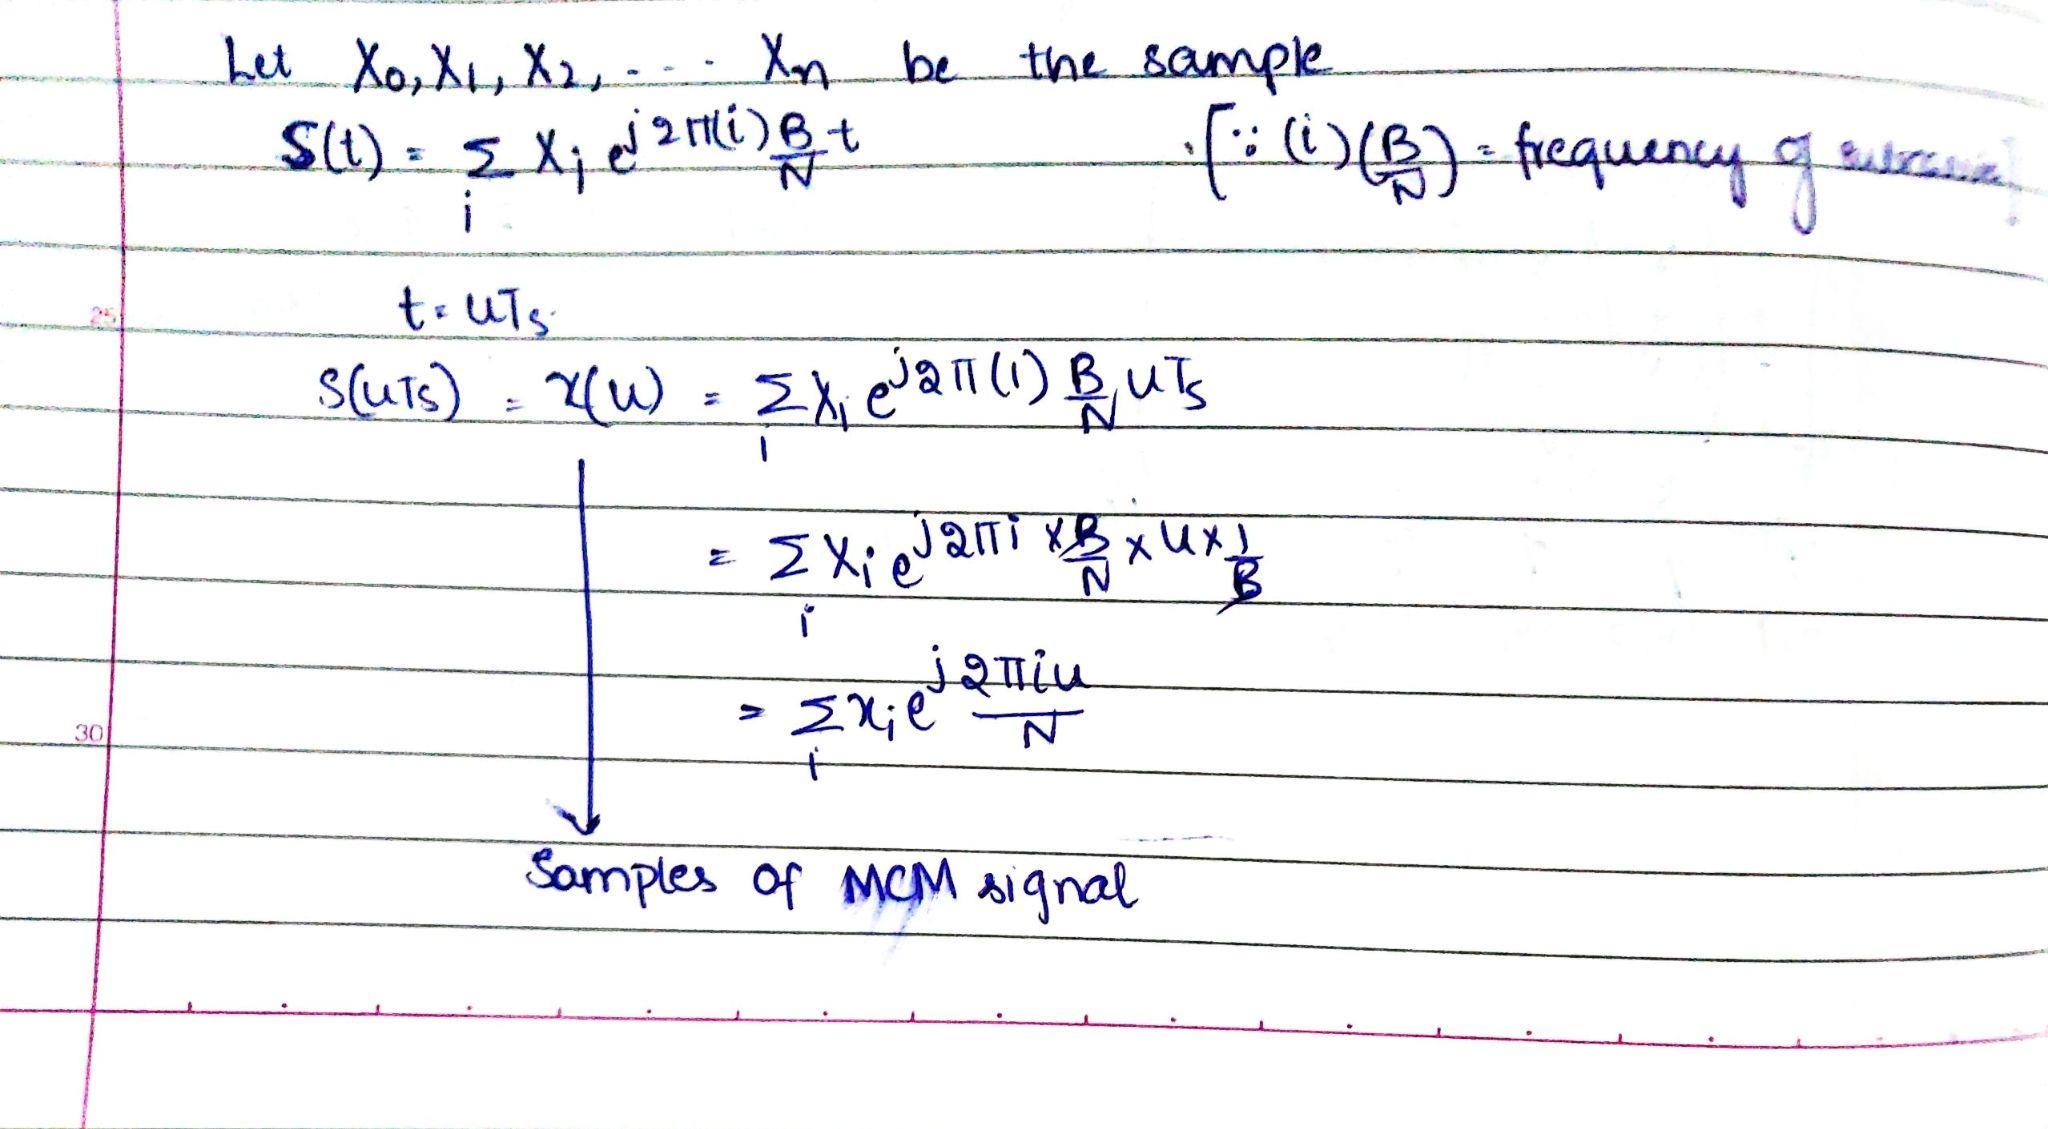 Let X₀, X₁, X₂, - - - Xn be the sample
S(t) = Σ_i X_i e^{j2π(i) B/N t} [∵ (i)(B/N) = frequency of
25
t = uTs
S(uTs) = x(u) = Σ_i X_i e^{j2π(i) B/N uTs}
= Σ_i X_i e^{j2πi × B/N × u × 1/B}
= Σ_i x_i e^{j2πiu/N}
30
Samples of MCM signal